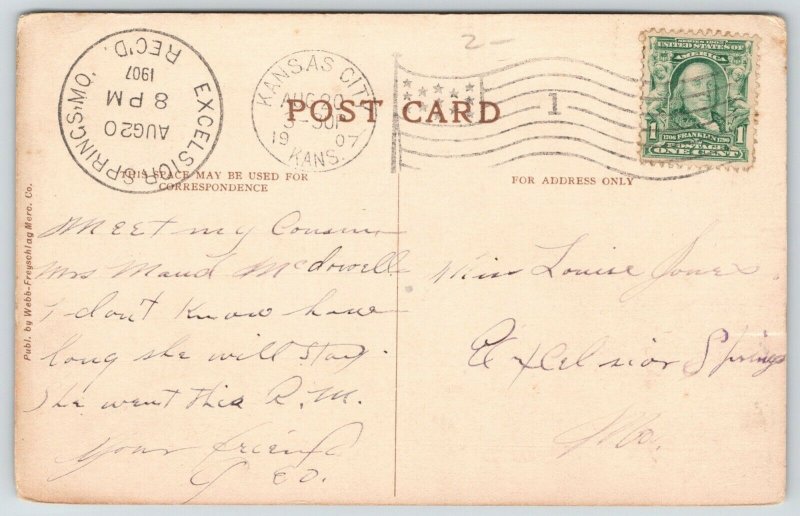 EXCELSIOR SPRINGS, MO.
AUG 20
8 PM
1907
REC'D.
KANSAS CITY
AUG 20
19 07
KANS.
2-
1
SERIES 1902
UNITED STATES OF
AMERICA
1 1706 FRANKLIN 1790 1
POSTAGE
ONE CENT
POST CARD
THIS SPACE MAY BE USED FOR
CORRESPONDENCE
FOR ADDRESS ONLY
Publ. by Webb-Freyschlag Merc. Co.
Meet my Cousin
Mrs Maud McDowell
I don't Know how
long she will stay.
She went this A.M.
your friend
Miss Louise Jones
Excelsior Springs
Mo.